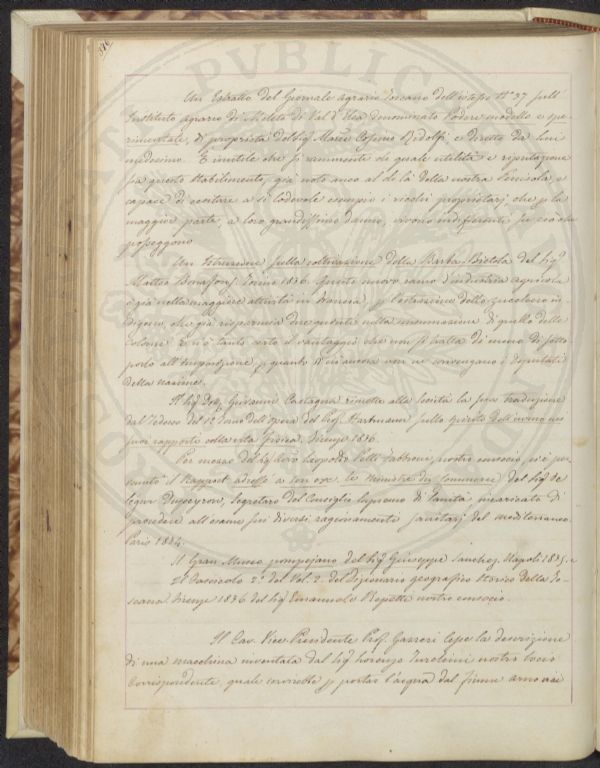 Un Estratto del Giornale agrario Toscano dell'istesso N.° 37 sull'
Instituto agrario di Meleto di Val d'Elsa denominato Podere modello e spe-
rimentale, di proprietà del Sig. March. Cosimo Ridolfi e diretto da lui
medesimo. È inutile che si rammenti di quale utilità e riputazione
sia questo stabilimento, già noto anco al di là della nostra Penisola, e
capace di eccitare a sì lodevole esempio i ricchi proprietarj, che p. la
maggior parte, a loro grandissimo danno, vivono indifferenti su ciò che
posseggono.
Un Istruzione sulla coltivazione della Barba-Bietola del Sig.
Matteo Bonafous. Torino 1836. Questo nuovo ramo d'industria agricola
è già nella maggiore attività in Francia, p. l'estrazione dello zucchero in-
digeno, che già risparmia due quinti nella consumazione di quello delle
Colonie. E n'è tanto certo il vantaggio che non si tratta di meno di sotto
porlo all'imposizione, p. quanto di ciò ancora non ne convengano i deputati
della nazione.
Il Sig. Dott. Giovanni Castagna rimette alla Società la sua traduzione
dal Tedesco del 1.° Tomo dell'opera del Prof. Hartmann sullo Spirito dell'uomo nei
suoi rapporti colla vita fisica. Firenze 1836.
Per mezzo del Sig. Cav. Leopoldo Pelli Fabbroni nostro consocio ci è per-
venuto il Rapport adressé a son exc. le Ministre du Commerce del Sig. de
Segur Dupeyron, Segretaro del Consiglio supremo di Sanità incaricato di
procedere all'esame sui diversi ragionamenti sanitarj del mediterraneo.
Paris 1834.
Il Gran Museo pompejano del Sig. Giuseppe Sanchez. Napoli 1835. e
il Fascicolo 2.° del Vol. 2. del Dizionario geografico storico della To-
scana. Firenze 1836 del Sig. Emanuele Repetti nostro consocio.
Il Cav. Vice-Presidente Prof. Gazzeri lesse la descrizione
di una macchina inventata dal Sig. Lorenzo Turchini nostro socio
Corrispondente, quale servirebbe p. portar l'acqua dal fiume arno nei